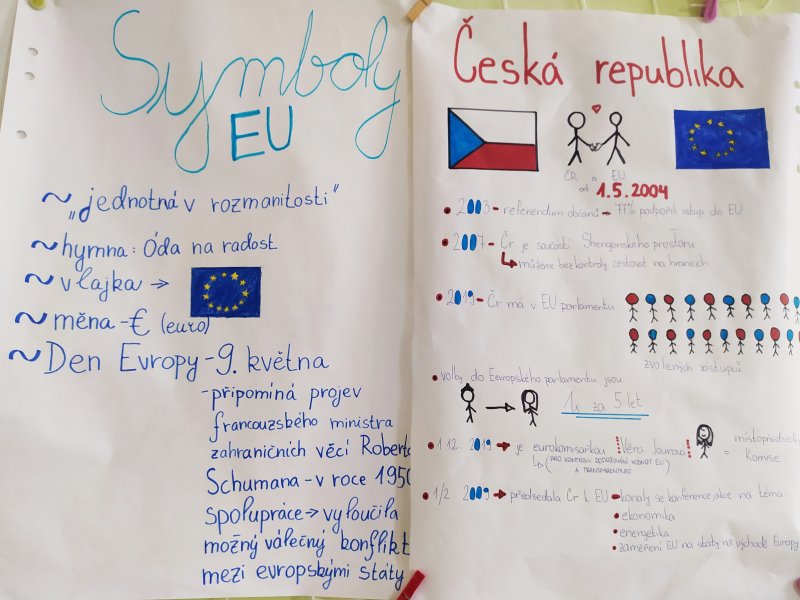 Symboly
EU
~ "jednotná v rozmanitosti"
~ hymna: Óda na radost
~ vlajka →
~ měna - € (euro)
~ Den Evropy - 9. května
- připomíná projev
francouzského ministra
zahraničních věcí Roberta
Schumana - v roce 1950
spolupráce → vyloučila
možný válečný konflikt
mezi evropskými státy
Česká republika
ČR a EU
od 1.5.2004
2003 - referendum občanů → 77% podpořilo vstup do EU
2007 - Čr je součástí Shengenského prostoru
můžeme bez kontroly cestovat na hranicích
2019 - Čr má v EU parlamentu
zvolených zástupců
volby do Eevropského parlamentu jsou
→ 1x za 5 let
1.12. 2019 → je eurokomisařkou Věra Jourová = místopředsedk
Komise
(PRO KONTROLU DODRŽOVÁNÍ HODNOT EU
A TRANSPARENTNOST)
1/2 2009 → předsedala Čr k EU → konaly se konference, akce na téma:
ekonomika
energetika
zaměření EU na státy na východě Evropy